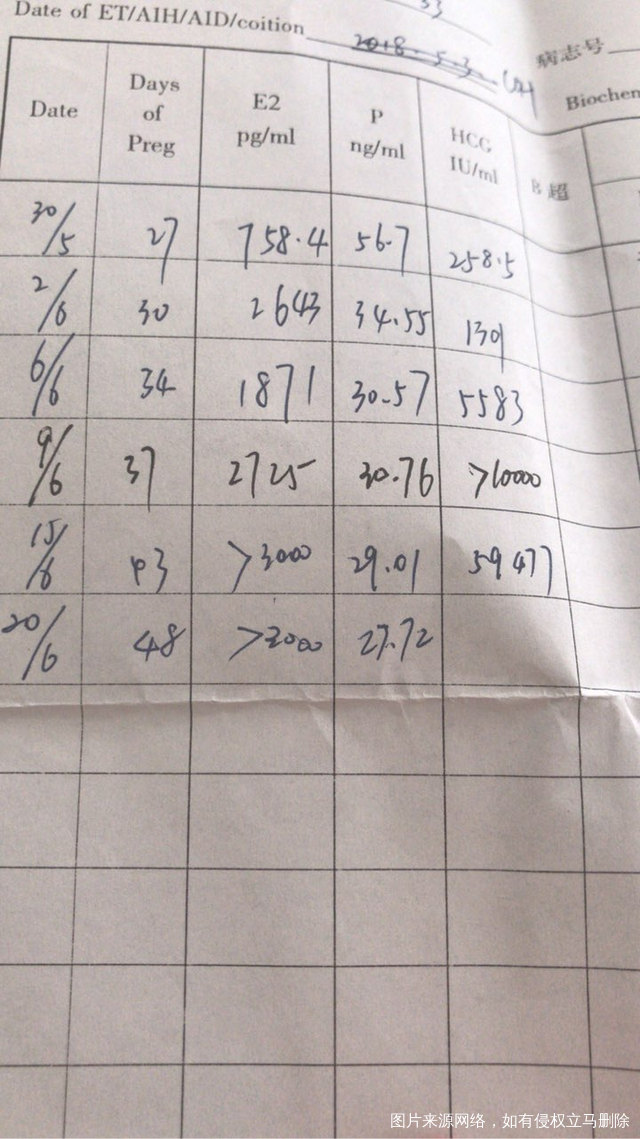 33
Date of ET/AIH/AID/coition 2018.5.3
病志号
Biochem
Date Days of Preg E2 pg/ml P ng/ml HCG IU/ml B超
30/5 27 758.4 56.7 258.5
2/6 30 2643 34.55 1309
6/6 34 1871 30.57 5583
9/6 37 2725 30.76 >10000
15/6 43 >3000 29.01 59477
20/6 48 >3000 27.72
图片来源网络，如有侵权立马删除